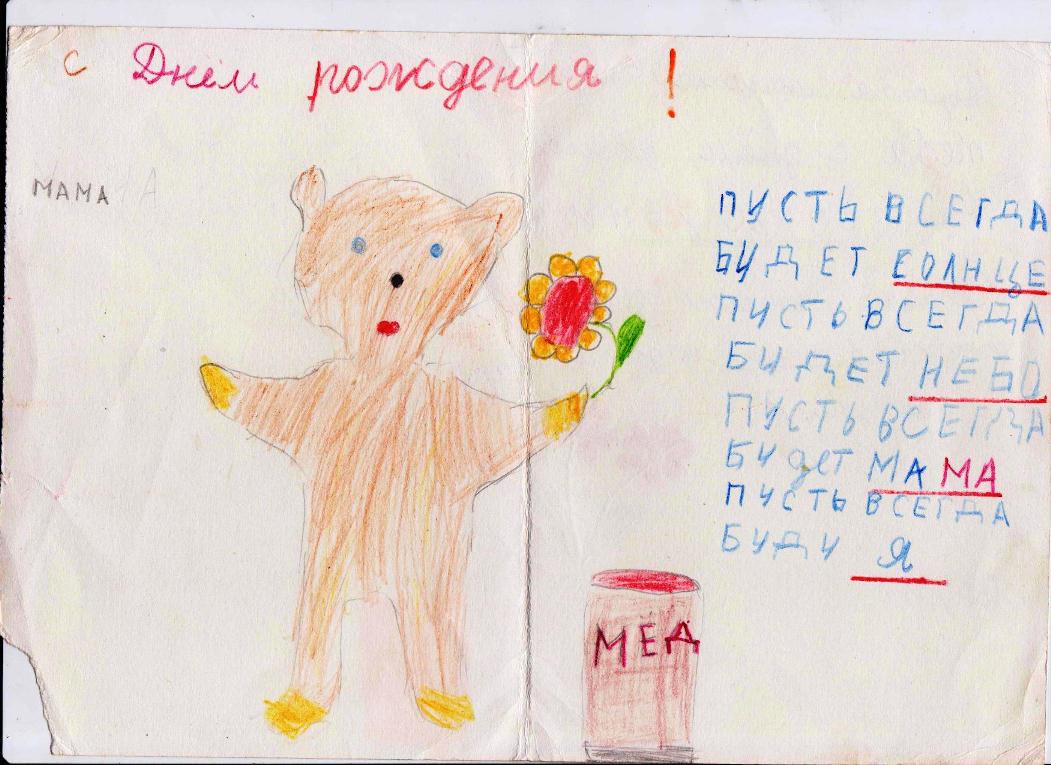 с Днём рождения !
МАМА
ПУСТЬ ВСЕГДА
БУДЕТ СОЛНЦЕ
ПУСТЬ ВСЕГДА
БУДЕТ НЕБО
ПУСТЬ ВСЕГДА
БУдеТ МАМА
ПУСТЬ ВСЕГДА
БУДУ Я
МЁД